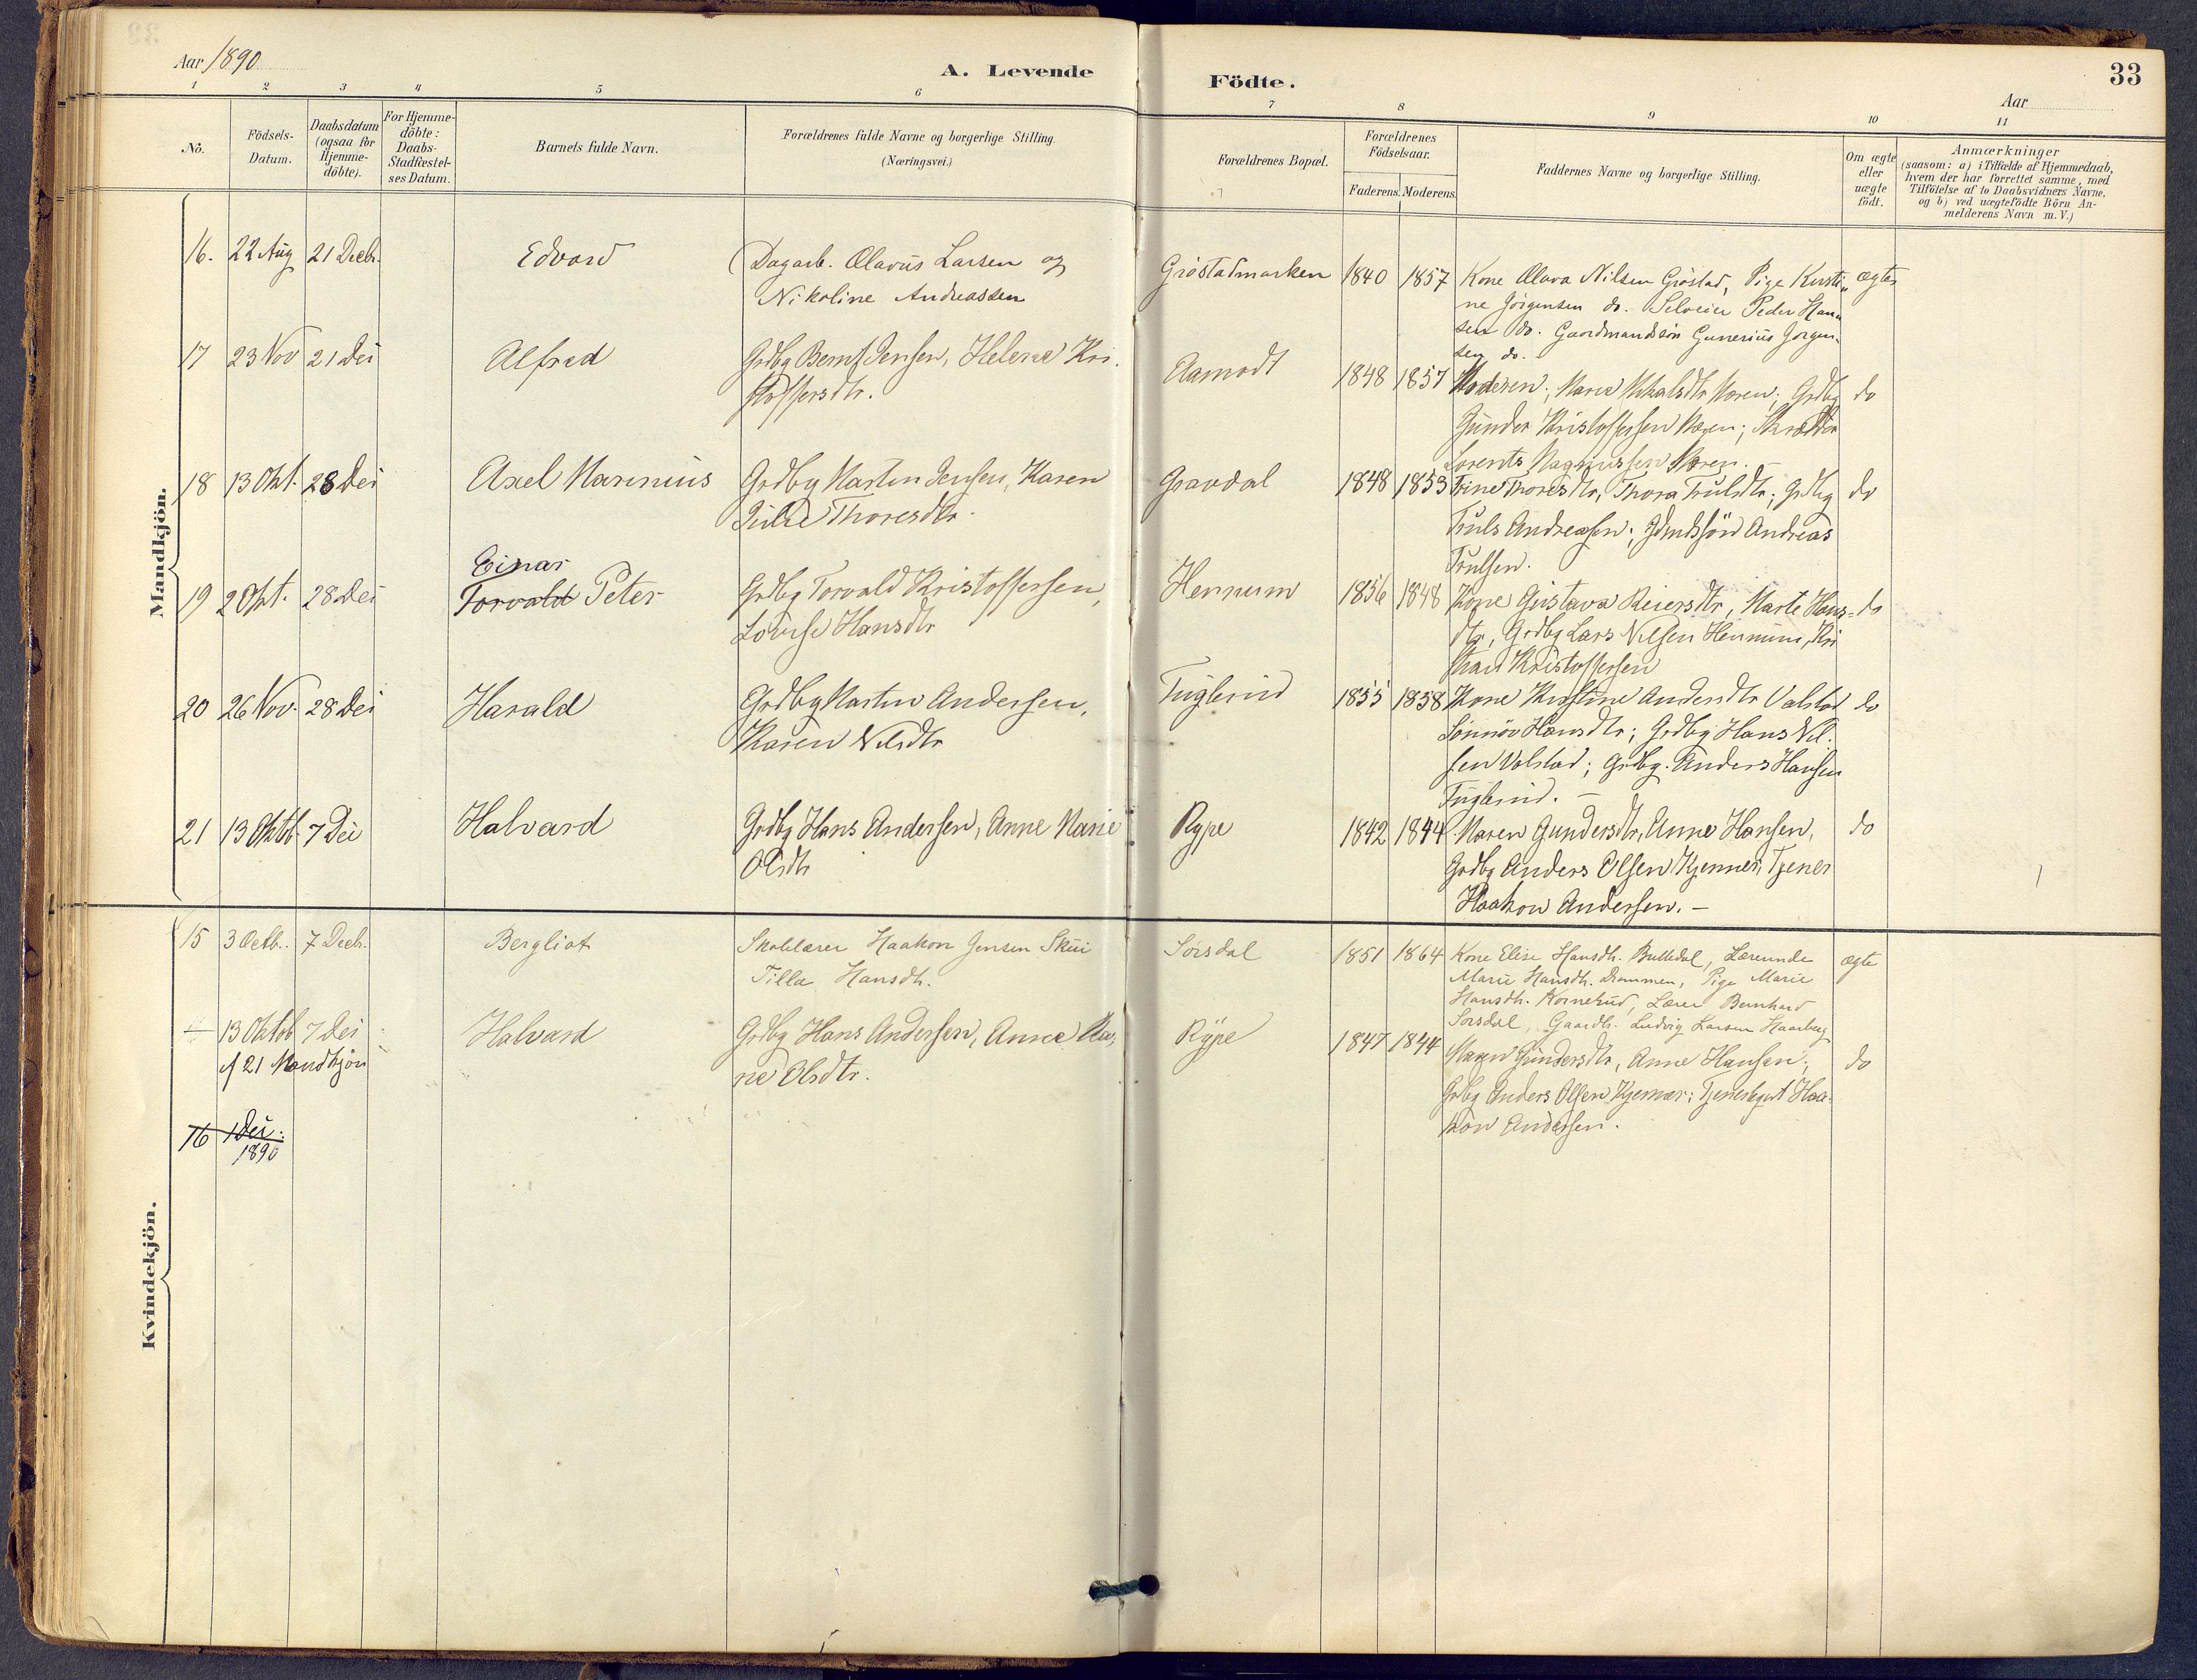 Aar 1890
A. Levende Födte.
33
Aar
1 2 3 4 5 6 7 8 9 10 11
No.
Födsels-
Datum.
Daabsdatum
(ogsaa for
Hjemme-
döbte).
For Hjemme-
döbte:
Daabs-
Stadfæstel-
ses Datum.
Barnets fulde Navn.
Forældrenes fulde Navne og borgerlige Stilling.
(Næringsvei.)
Forældrenes Bopæl.
Forældrenes
Födselsaar.
Faderens. Moderens.
Faddernes Navne og borgerlige Stilling.
Om ægte
eller
uægte
födt.
Anmærkninger
(saasom: a) i Tilfælde af Hjemmedaab,
hvem der har forrettet samme, med
Tilföielse af to Daabsvidners Navne,
og b) ved uægtefödte Börn An-
melderens Navn m.V.)
Mandkjön.
16. 22 Aug 21 Decb. Edvard
Dagarb. Olavus Larsen og
Nikoline Andreassen
Gröstadmarken 1840 1857
Kone Olava Nilsen Gröstad, Pige Kirsti- ægte
ne Jörgensen do. Selveier Peder Han-
sen do. Gaardmandssön Gunerius Jörgen-
sen do.
17 23 Nov 21 Dei Alfred
Grdbg Bernt Jensen, Helene Kri-
stoffersdtr.
Aamodt 1848 1857
Moderen; Maren Mikalsdtr Moren; Grdbg do
Gunder Kristoffersen Moren; Skrædder
Lorents Magnussen Moren. —
18 13 Okt. 28 Dei Axel Marinius
Grdbg Martin Jensen, Karen
Julie Thoresdtr.
Gravdal 1848 1853
Trine Thoresdtr, Thora Trulsdtr; Grdbg do
Truls Andreasen; Gdmdssön Andreas
Trulsen.
19 2 Okt. 28 Dei Einar
Torvald Peter
Grdbg Torvald Kristoffersen,
Lovise Hansdtr
Hennum 1856 1848
Kone Gustava Reiersdtr, Marte Hans- do
dtr, Grdbg Lars Nilsen Hennum, Kri
stian Kristoffersen
20 26 Nov. 28 Dei Harald
Grdbg Martin Andersen,
Karen Nilsdtr
Fuglerud 1855 1858
Kone Kristine Andersdtr Valstad do
Sönnöv Hansdtr; Grdbg Hans Nil-
sen Valstad; Grdbg. Anders Hansen
Fuglerud. —
21 13 Oktob 7 Dei Halvard
Grdbg Hans Andersen, Anne Marie
Olsdtr
Rype 1842 1844
Maren Gundersdtr, Anne Hansen, do
Grdbg Anders Olsen Kjenner, Tjener
Haakon Andersen. —
Kvindekjön.
15 3 Octb. 7 Decb. Bergliot
Skolelærer Haakon Jensen Skui
Tilla Hansdtr.
Sörsdal 1851 1864
Kone Elise Hansdtr. Bulledal, Lærerinde ægte
Marie Hansdtr. Drammen, Pige Marie
Hansdtr. Kornerud, Lærer Bernhard
Sörsdal, Gaardb. Ludvig Larsen Haarberg
13 Oktob 7 Dei Halvard
cf 21 Mandkjön
Grdbg Hans Andersen, Anne Ma-
rie Olsdtr.
Rype 1847 1844
Maren Gundersdtr, Anne Hansen; do
Grdbg Anders Olsen Kjenner; Tjenestegut Haa-
kon Andersen.
16 1 Dei:
1890